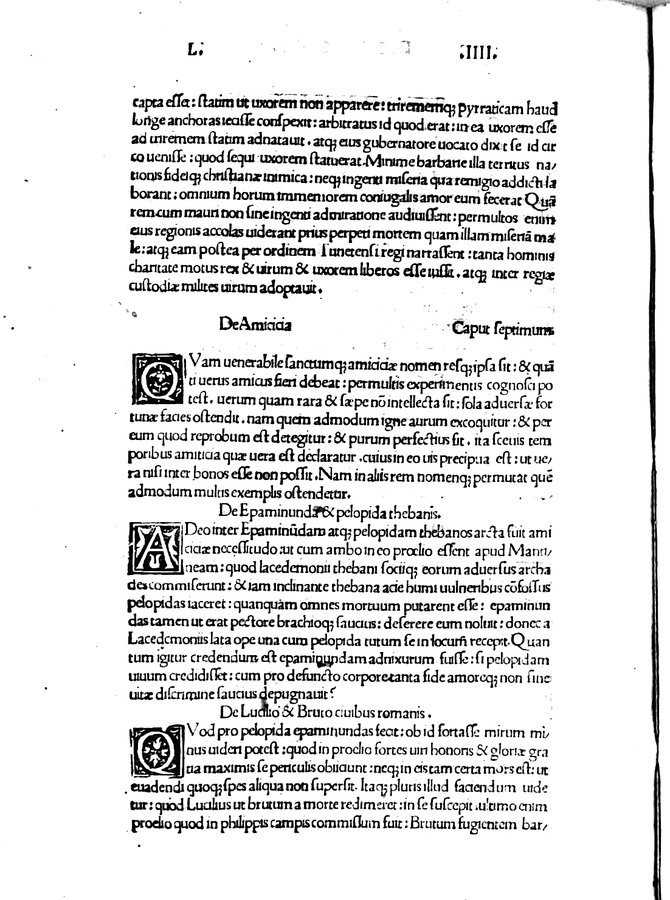 L. .IIII.
capta esset: statim ut uxorem non apparere: triremēq; pyrraticam haud
longe anchoras iecisse conspexit: arbitratus id quod erat: in ea uxorem esse
ad triremem statim adnatauit. atq; eius gubernatore uocato dixit se id cir
co uenisse: quod sequi uxorem statuerat. Minime barbarie illa territus na/
tionis fideiq; christianæ inimica: neq; ingenti miseria qua remigio addicti la
borant: omnium horum immemorem coniugalis amor eum fecerat Quā
rem cum mauri non sine ingenti admiratione audiuissent: permultos enim
eius regionis accolas uiderant prius perpeti mortem quam illam miseriā ma
le: atq; eam postea per ordinem Tunetensi regi narrassent: tanta hominis
charitate motus rex & uirum & uxorem liberos esse iussit. atq; inter regiæ
custodiæ milites uirum adoptauit.
De Amicicia Caput septimum
QVam uenerabile sanctumq; amiciciæ nomen resq; ipsa sit: & quā
ti uerus amicus fieri debeat: permultis experimentis cognosci po
test. uerum quam rara & sæpe nō intellecta sit: sola aduersæ for
tunæ facies ostendit. nam quem admodum igne aurum excoquitur: & per
eum quod reprobum est detegitur: & purum perfectius fit. ita sceuis tem
poribus amiticia quæ uera est declaratur. cuius in eo uis precipua est: ut ue/
ra nisi inter bonos esse non possit. Nam in aliis rem nomenq; permutat quē
admodum multis exemplis ostendetur.
De Epaminunda & pelopida thebanis.
ADeo inter Epaminūdam atq; pelopidam thebanos arcta fuit ami
ciciæ necessitudo: ut cum ambo in eo prœlio essent apud Manti/
neam: quod lacedemonii thebani sociiq; eorum aduersus archa
des commiserunt: & iam inclinante thebana acie humi uulneribus cōfossus
pelopidas iaceret: quanquam omnes mortuum putarent esse: epaminun
das tamen ut erat pectore brachioq; saucius: deserere eum noluit: donec a
Lacedęmoniis lata ope una cum pelopida tutum se in locum recepit. Quan
tum igitur credendum est epaminundam adnixurum fuisse: si pelopidam
uiuum credidisset: cum pro defuncto corpore tanta fide amoreq; non sine
uitæ discrimine saucius depugnauit?
De Lucilio & Bruto ciuibus romanis.
QVod pro pelopida epaminundas fecit: ob id fortasse mirum mi/
nus uideri potest: quod in proelio fortes uiri honoris & gloriæ gra
tia maximis se periculis obiiciunt: neq; in eis tam certa mors est: ut
euadendi quoq; spes aliqua non supersit. Itaq; pluris illud faciendum uide
tur: quod Lucilius ut brutum a morte redimeret: in se suscepit. ultimo enim
proelio quod in philippis campis commissum fuit: Brutum fugientem bar/